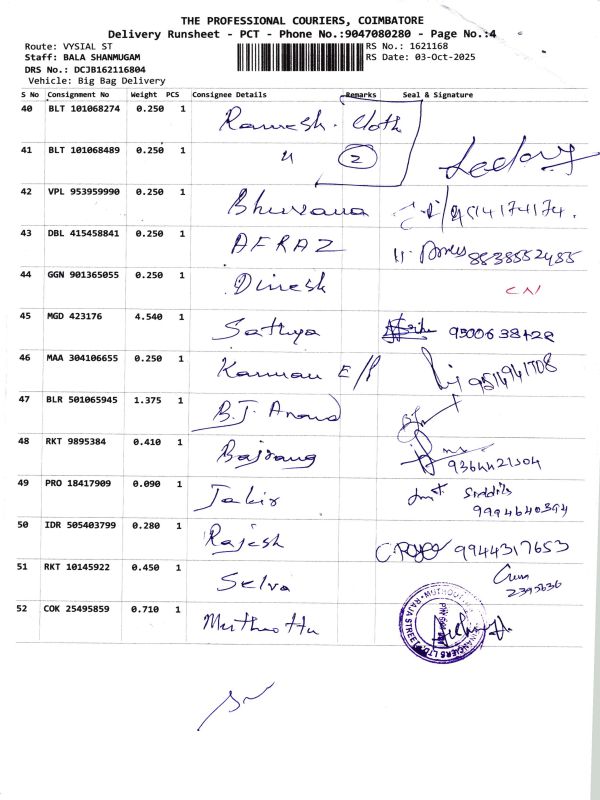 THE PROFESSIONAL COURIERS, COIMBATORE
Delivery Runsheet - PCT - Phone No.:9047080280 - Page No.:4
Route: VYSIAL ST
RS No.: 1621168
Staff: BALA SHANMUGAM
RS Date: 03-Oct-2025
DRS No.: DCJB162116804
Vehicle: Big Bag Delivery
S No Consignment No Weight PCS Consignee Details Remarks Seal & Signature
40 BLT 101068274 0.250 1 Ramesh. Cloth
41 BLT 101068489 0.250 1 " 2
42 VPL 953959990 0.250 1 Bhuvana
43 DBL 415458841 0.250 1 AFRAZ 8838552485
44 GGN 901365055 0.250 1 Dinesh
45 MGD 423176 4.540 1 Sathya
46 MAA 304106655 0.250 1 Kannan E/P
47 BLR 501065945 1.375 1 B.J. Anand
48 RKT 9895384 0.410 1 Bajrang
49 PRO 18417909 0.090 1 Jakir
9994640394
50 IDR 505403799 0.280 1 Rajesh 9944317653
51 RKT 10145922 0.450 1 Selva
2395636
52 COK 25495859 0.710 1 Muthoottu
RAJA STREET